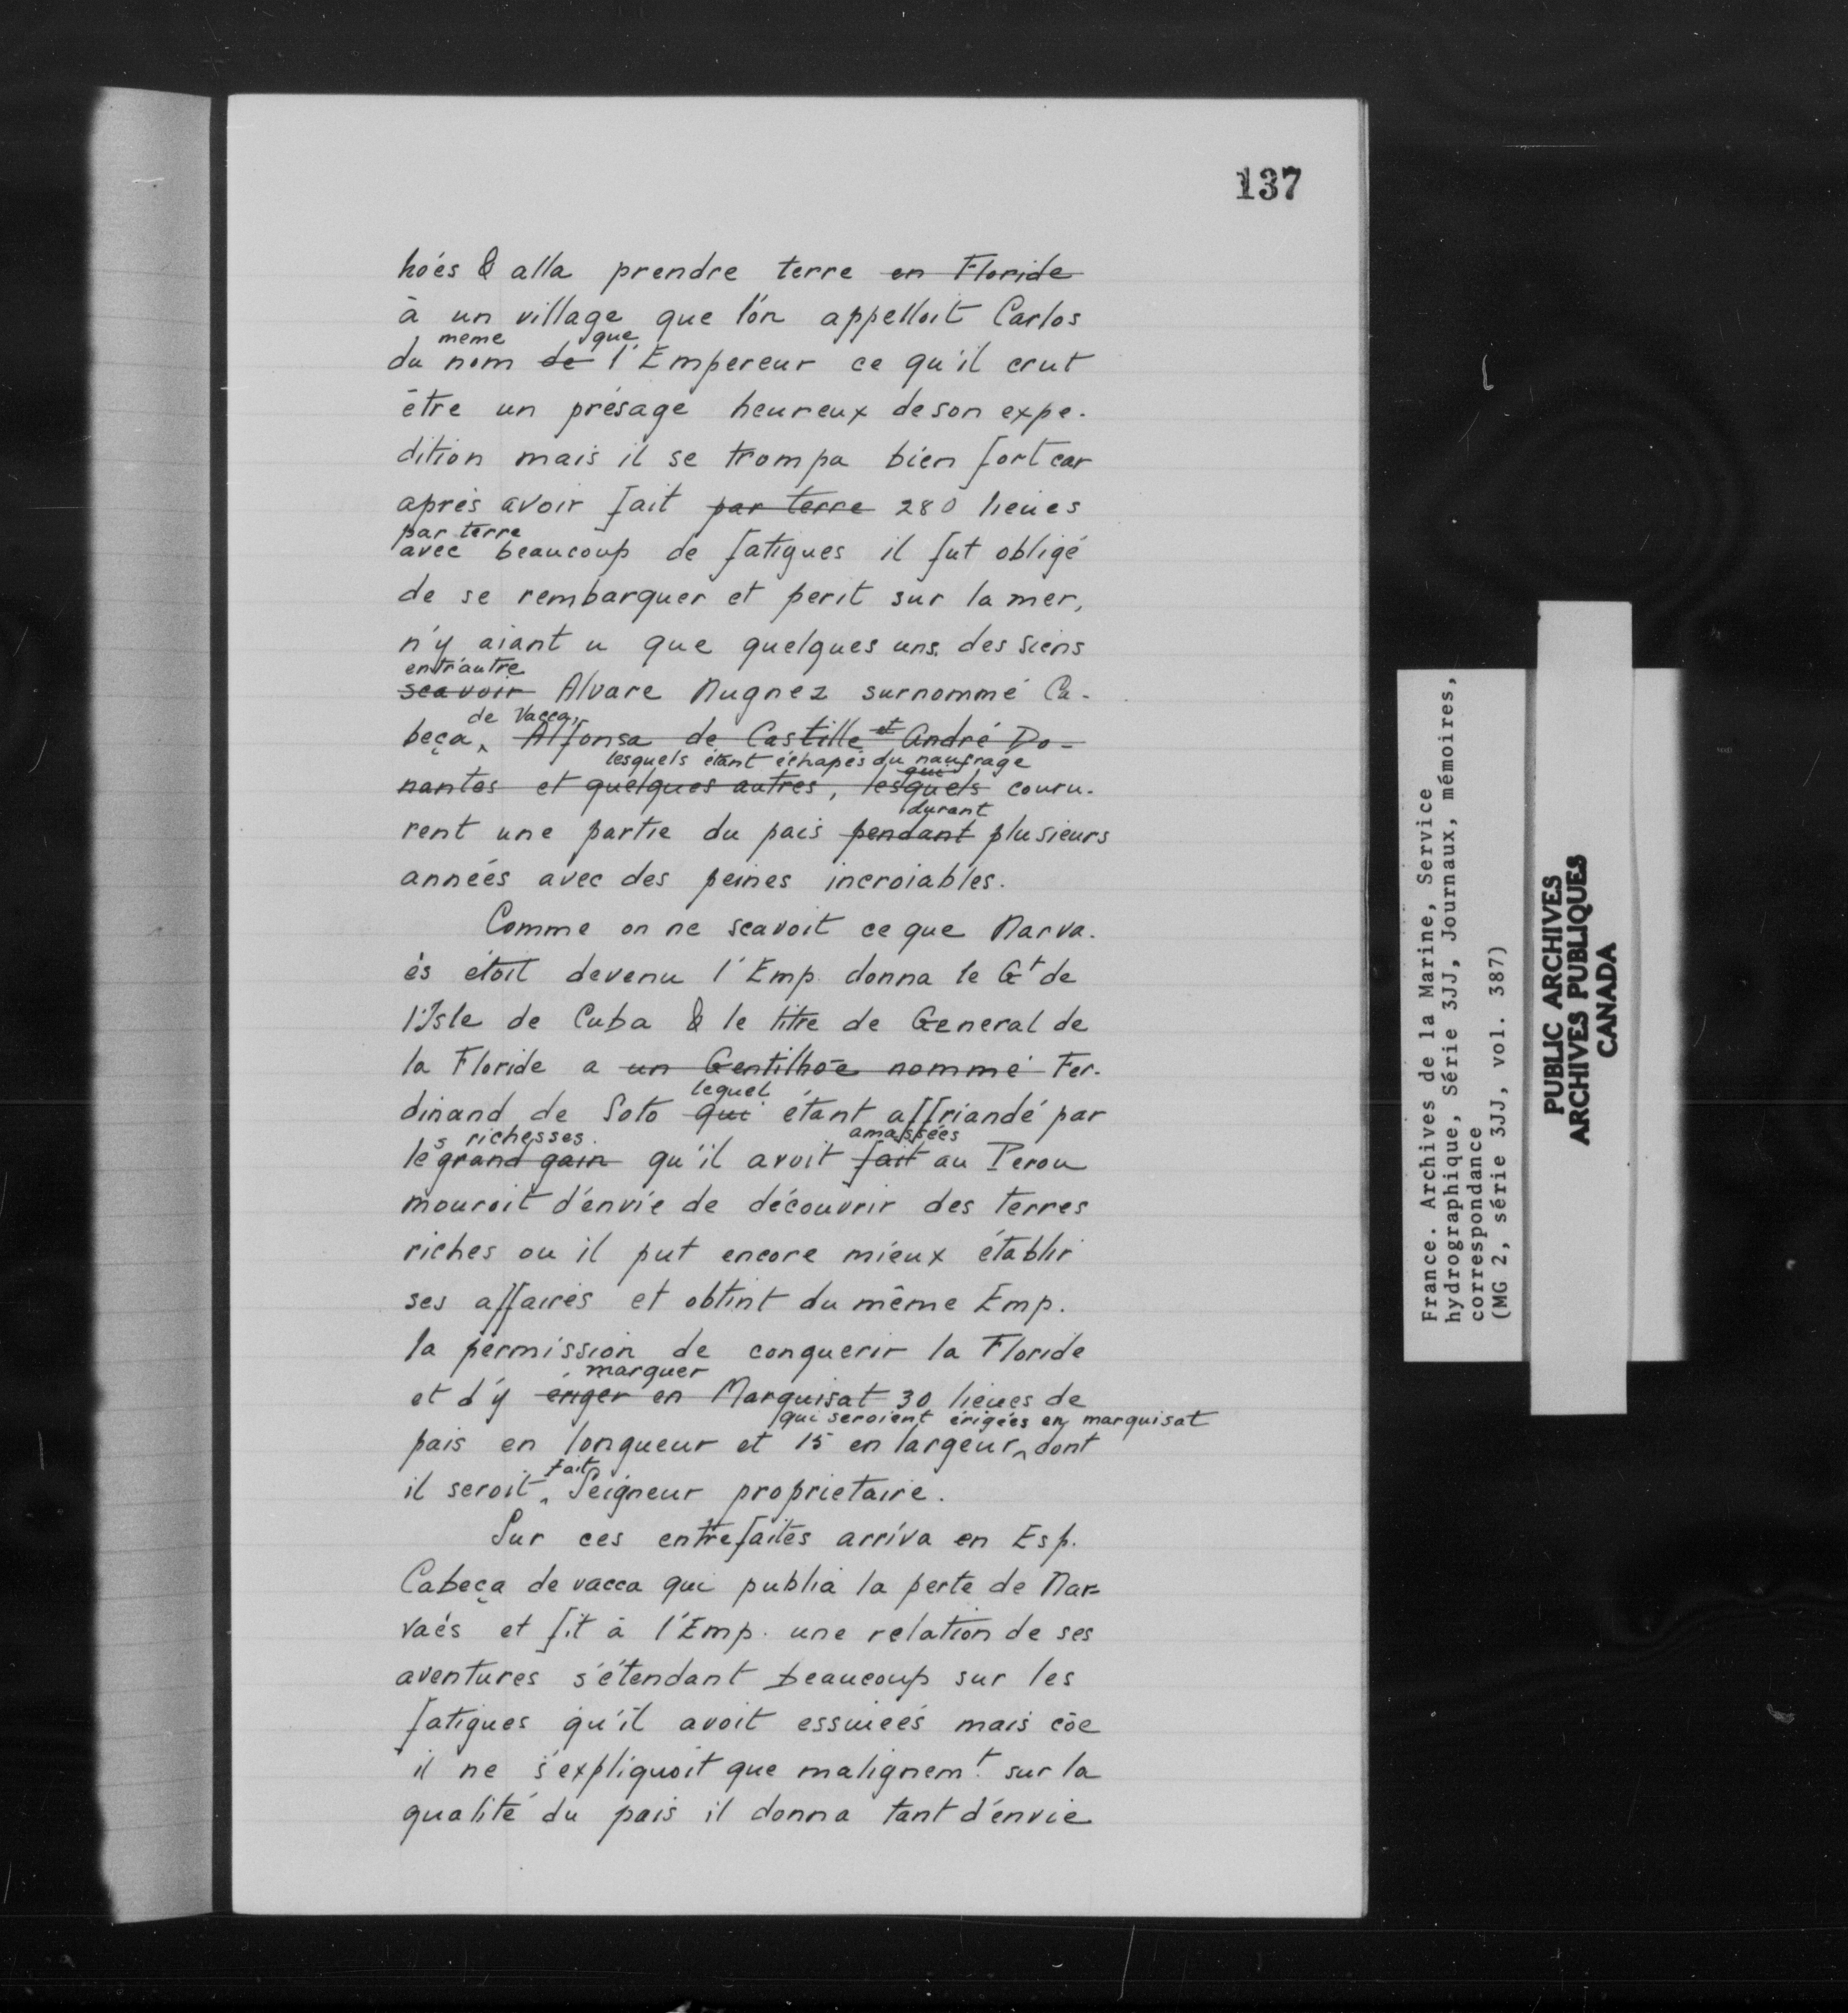 137
hoés & alla prendre terre en Floride
à un village que l'on appelloit Carlos
meme que
du nom de l'Empereur ce qu'il crut
être un présage heureux de son expe-
dition mais il se trompa bien fort car
après avoir fait par terre 280 lieües
par terre
avec beaucoup de fatigues il fut obligé
de se rembarquer et perit sur la mer,
n'y aiant u que quelques uns des siens
entr'autre
scavoir Alvare Nugnez surnommé Ca-
de Vacca, et
beça ‸ Alfonsa de Castille André Do-
lesquels étant échapés du naufrage
qui
nantes et quelques autres, lesquels couru-
durant
rent une partie du pais pendant plusieurs
années avec des peines incroiables.
Comme on ne scavoit ce que Narva-
és étoit devenu l'Emp. donna le Gt de
l'Isle de Cuba & le titre de General de
la Floride a un Gentilhōe nommé Fer-
lequel
dinand de Soto qui étant affriandé par
s richesses amassées
le grand gain qu'il avoit fait au Perou
mouroit d'envie de découvrir des terres
riches ou il put encore mieux établir
ses affaires et obtint du même Emp.
la permission de conquerir la Floride
marquer
et d'y ériger en Marquisat 30 lieües de
qui seroient érigées en marquisat
pais en longueur et 15 en largeur ‸ dont
fait
il seroit ‸ Seigneur proprietaire.
Sur ces entrefaites arriva en Esp.
Cabeça de vacca qui publia la perte de Nar-
vaés et fit à l'Emp. une relation de ses
aventures s'étendant beaucoup sur les
fatigues qu'il avoit essuieés mais cōe
il ne s'expliquoit que malignemt. sur la
qualité du pais il donna tant d'envie
France. Archives de la Marine, Service
hydrographique, Série 3JJ, Journaux, mémoires,
correspondance
(MG 2, série 3JJ, vol. 387)
PUBLIC ARCHIVES
ARCHIVES PUBLIQUES
CANADA